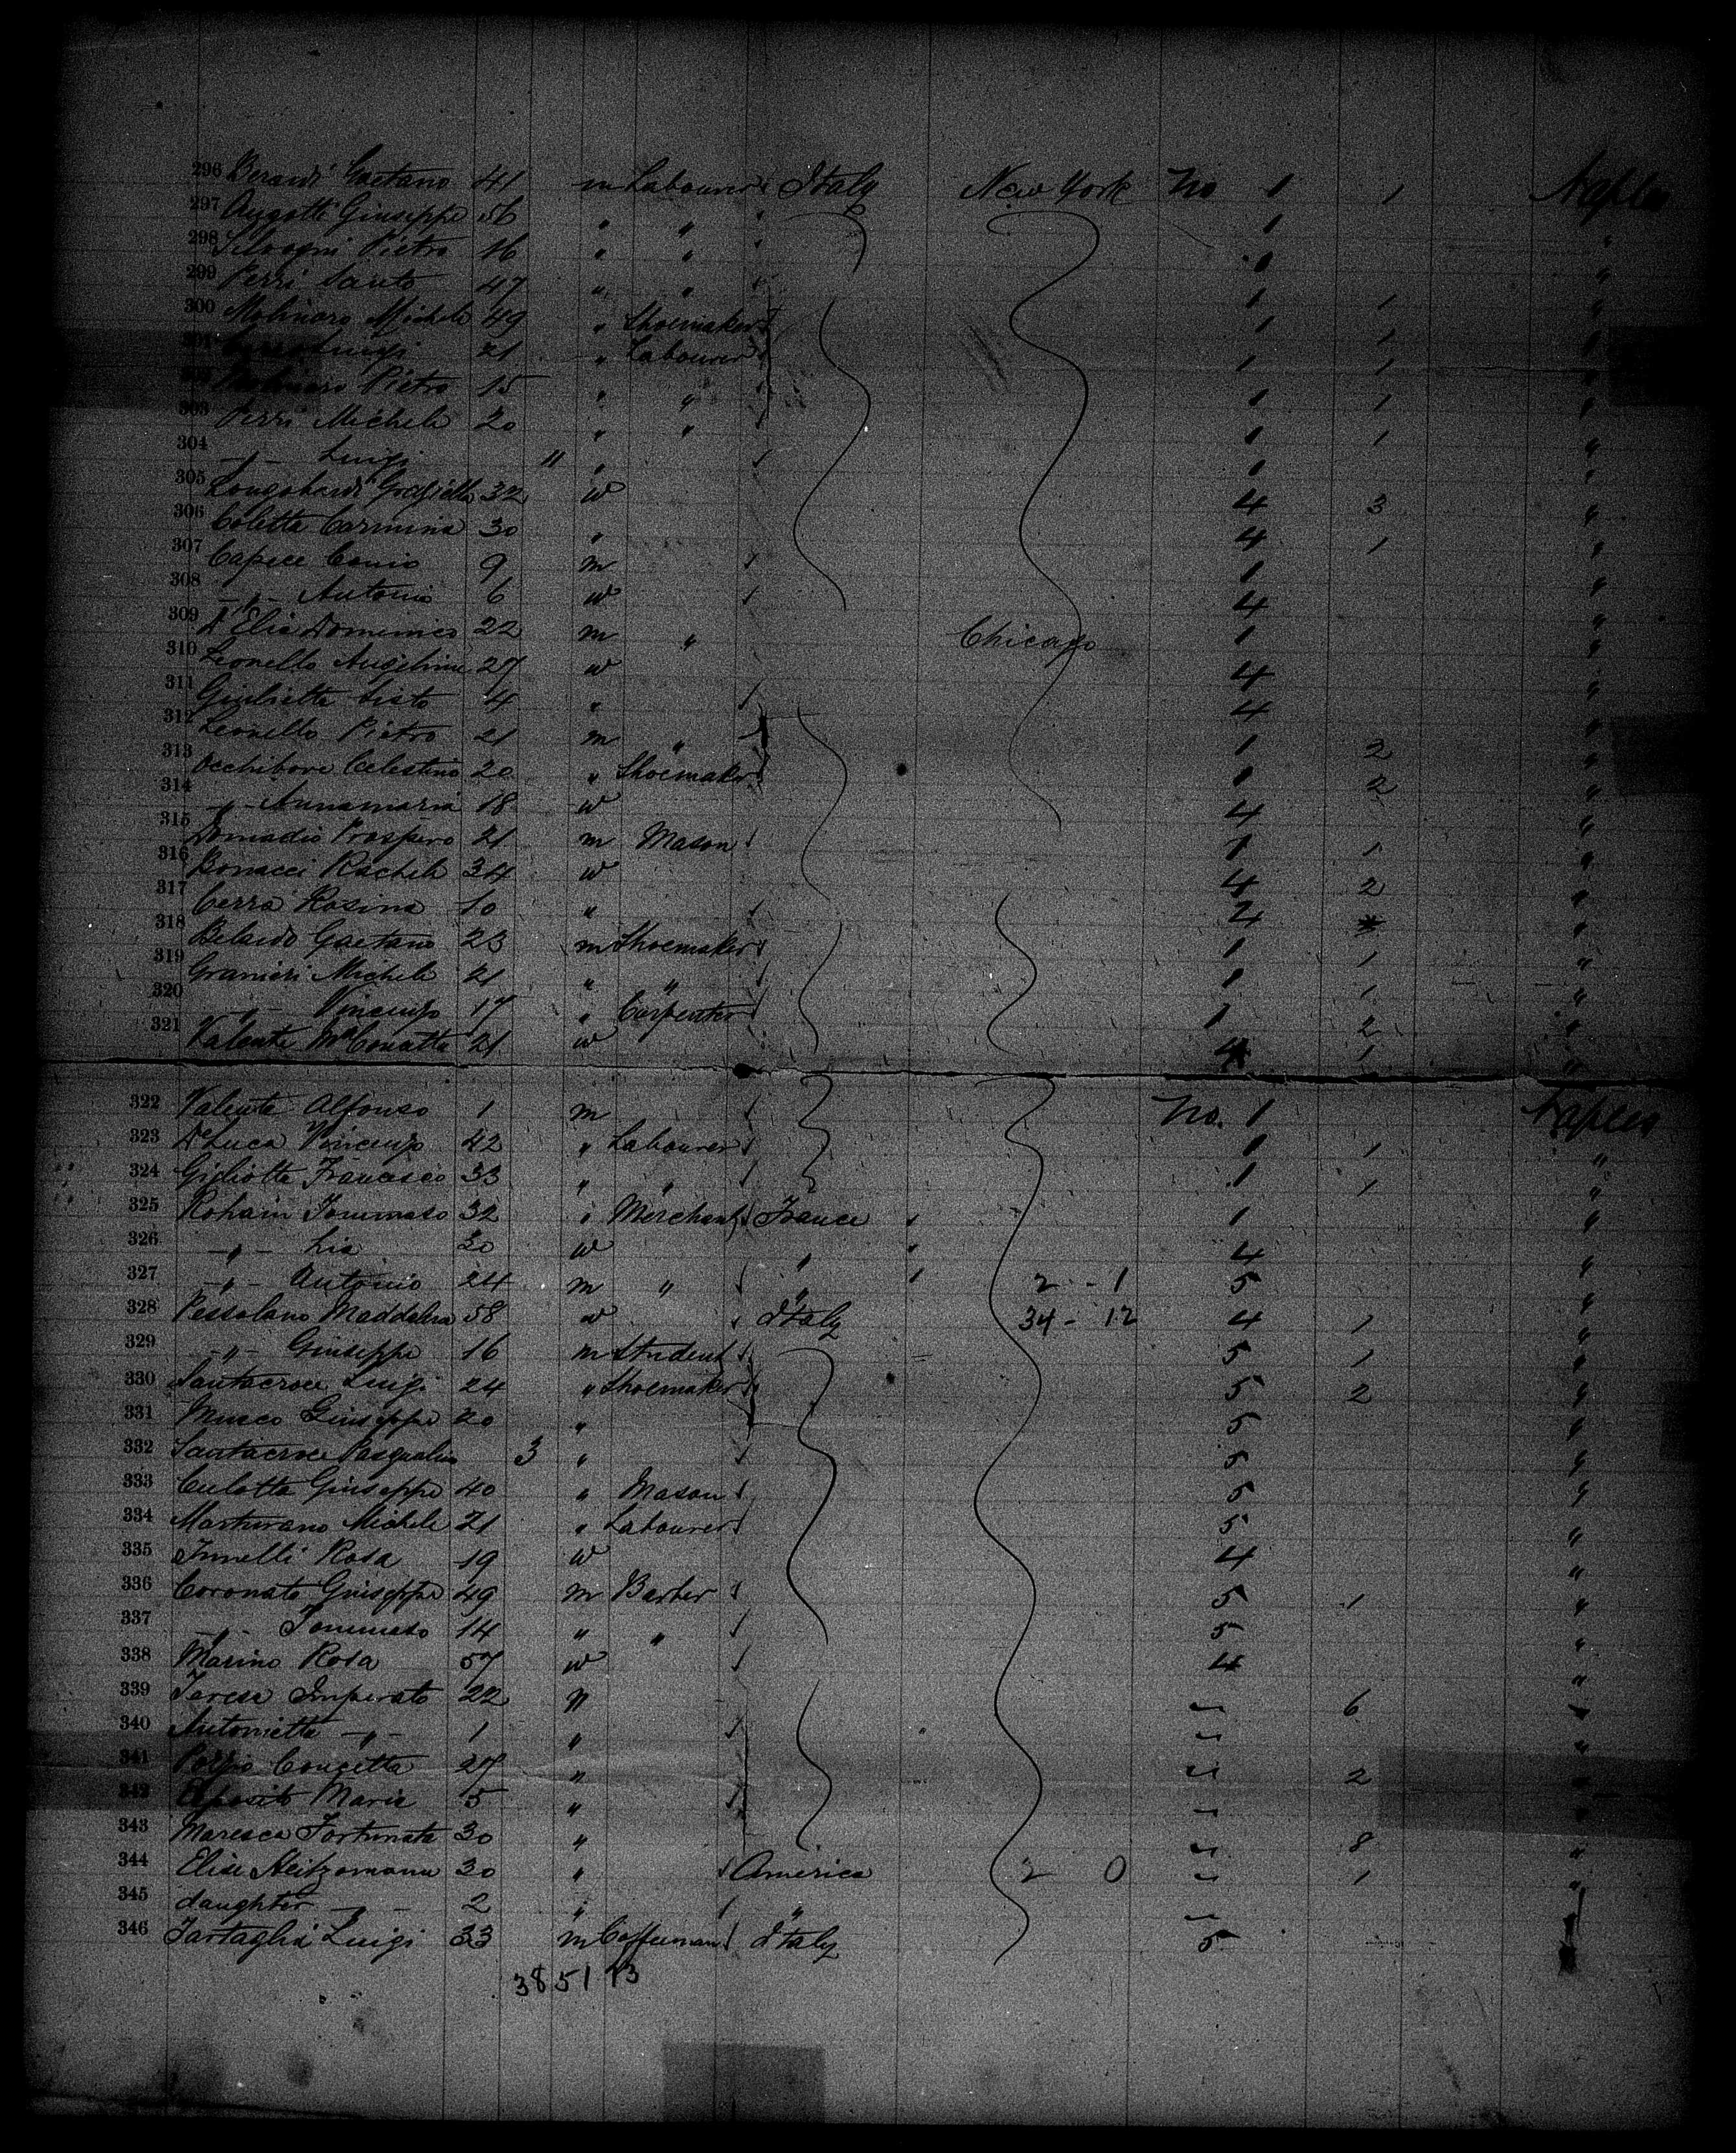 296 Berardi Gaetano 41 m Labourer Italy New York No 1 1 Naples
297 Giuseppe 56 " " 1 "
298 Pietro 16 " " 1 "
299 Perri Santo 47 " " 1 1 "
300 Molinaro Michele 49 " Shoemaker 1 1 "
301 Luigi 21 " Labourer 1 1 "
Molinaro Pietro 15 " " 1 1 "
303 Perri Michele 20 " " 1 1 "
304 -"- Luigi 11 " 1 "
305 Longobardi Graziella 32 w 4 3 "
306 Coletta Carmina 30 " 4 1 "
307 Capece Canio 9 m 1 "
308 -"- Antonia 6 w 4 "
309 D'Elia Domenico 22 m " Chicago 1 "
310 Leonello 27 w 4 "
311 Giglietta Sisto 4 " 4 "
312 Leonello Pietro 21 m " 1 2 "
313 Occhibove Celestino 20 " Shoemaker 1 2 "
314 -"- Annamaria 18 w 4 "
315 Prospero 21 m Mason 1 1 "
316 Bonacci Rachele 34 w 4 2 "
317 Cerra Rosina 10 " 4 "
318 Belardo Gaetano 23 m Shoemaker 1 1 "
319 Granieri Michele 21 " " 1 1 "
320 -"- Vincenzo 17 " Carpenter 1 2 "
321 Valente 21 w 4 1 "
322 Valente Alfonso 1 m No. 1 Naples
323 De Luca Vincenzo 42 " Labourer 1 1 "
324 Gigliotta Francesco 33 " " 1 1 "
325 Rohain Tommaso 32 " Merchant France 1 "
326 -"- Lia 30 w " 4 "
327 -"- Antonio 24 m " " 2 - 1 5 "
328 Pessolano Maddalena 58 w Italy 34 - 12 4 1 "
329 -"- Giuseppe 16 m Student 5 1 "
330 Santacroce Luigi 24 " Shoemaker 5 2 "
331 Giuseppe 20 " 5 "
332 Santacroce Pasqualino 3 " 5 "
333 Culotta Giuseppe 40 " Mason 5 "
334 Marturano Michele 21 " Labourer 5 "
335 Rosa 19 w 4 "
336 Coronato Giuseppe 49 m Barber 5 1 "
337 -"- Tommaso 14 " " 5 "
338 Marino Rosa 57 w 4 "
339 Teresa Imperato 22 " " 6 "
340 Antonietta -"- 1 " " "
341 Concetta 27 " " 2 "
342 Esposito Maria 5 " " "
343 Maresca Fortunata 30 " " 8 "
344 Elise Heitzomann 30 " America 2 0 " 1 "
345 daughter -"- 2 " " "
346 Tartaglia Luigi 33 m Italy 5